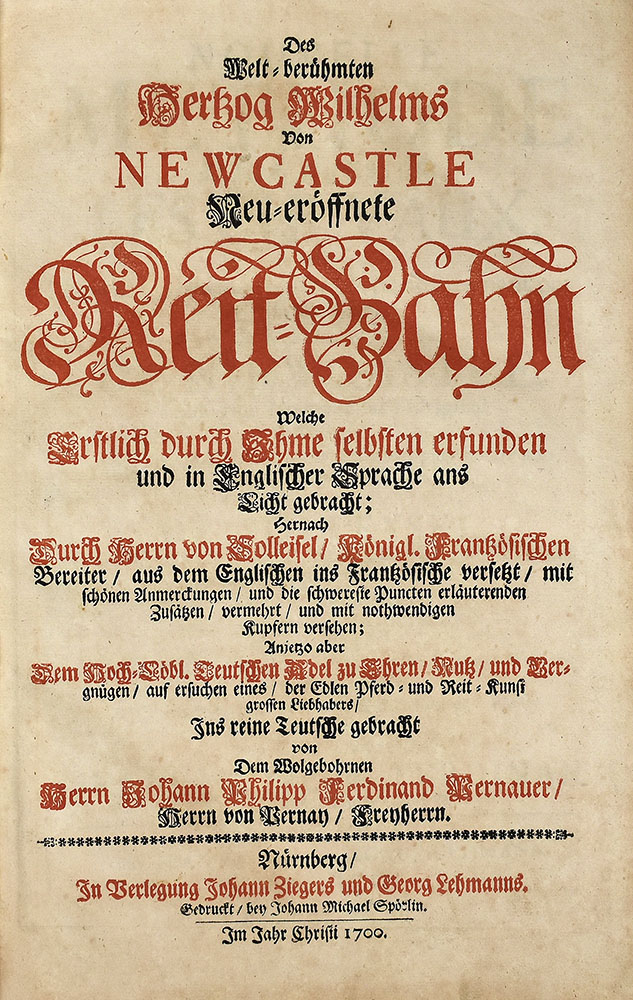 Des
Welt-berühmten
Hertzog Wilhelms
Von
NEWCASTLE
Neu-eröffnete
Reit-Bahn
Welche
Erstlich durch Ihme selbsten erfunden
und in Englischer Sprache ans
Licht gebracht;
Hernach
Durch Herrn von Solleisel/ Königl. Frantzösischen
Bereiter / aus dem Englischen ins Frantzösische versetzt / mit
schönen Anmerckungen / und die schwereste Puncten erläuterenden
Zusätzen / vermehrt / und mit nothwendigen
Kupfern versehen;
Anjetzo aber
Dem Hoch-Löbl. Teutschen Adel zu Ehren/ Nutz/ und Ver-
gnügen / auf ersuchen eines / der Edlen Pferd- und Reit-Kunst
grossen Liebhabers/
Ins reine Teutsche gebracht
von
Dem Wolgebohrnen
Herrn Johann Philipp Ferdinand Pernauer/
Herrn von Pernay / Freyherrn.
Nürnberg/
In Verlegung Johann Ziegers und Georg Lehmanns.
Gedruckt / bey Johann Michael Spörlin.
Im Jahr Christi 1700.